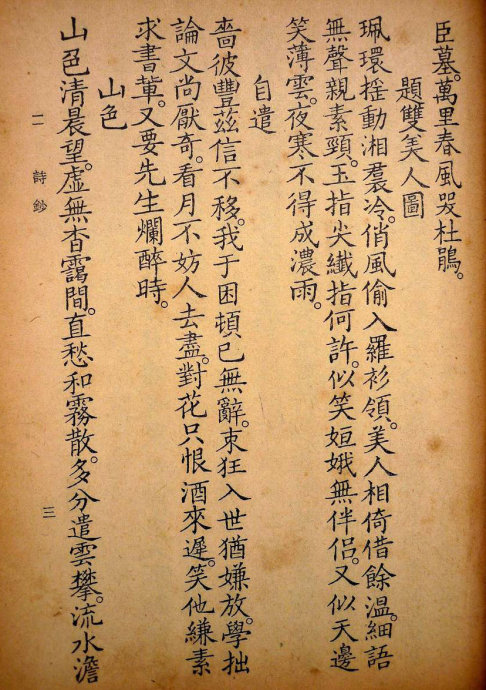 臣墓。萬里春風哭杜鵑。
題雙美人圖
珮環搖動湘裠冷。俏風偷入羅衫領。美人相倚借餘溫。細語
無聲親素頸。玉指尖纖指何許。似笑姮娥無伴侶。又似天邊
笑薄雲。夜寒不得成濃雨。
自遣
嗇彼豐茲信不移。我于困頓已無辭。束狂入世猶嫌放。學拙
論文尚厭奇。看月不妨人去盡。對花只恨酒來遲。笑他縑素
求書輩。又要先生爛醉時。
山色
山色清晨望。虛無杳靄間。直愁和霧散。多分遣雲攀。流水澹
二 詩鈔 三